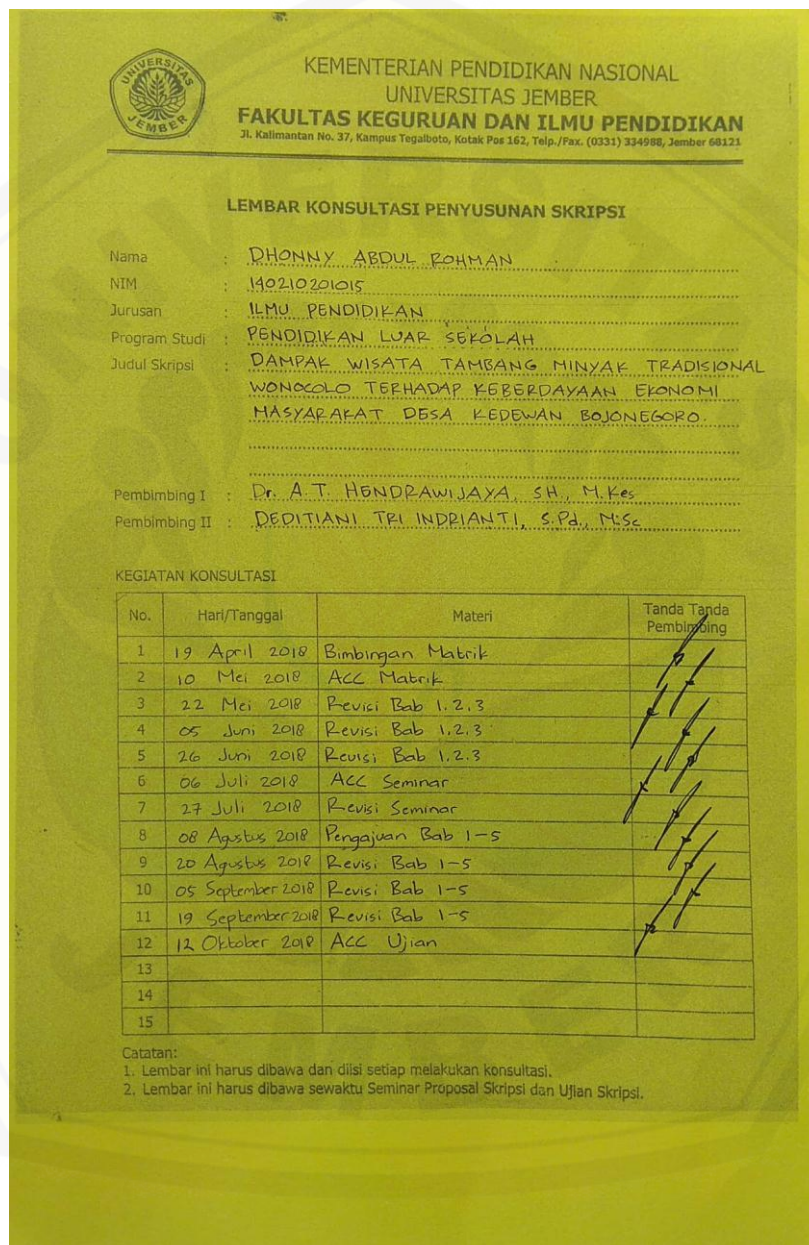 UNIVERSITAS
JEMBER
KEMENTERIAN PENDIDIKAN NASIONAL
UNIVERSITAS JEMBER
FAKULTAS KEGURUAN DAN ILMU PENDIDIKAN
Jl. Kalimantan No. 37, Kampus Tegalboto, Kotak Pos 162, Telp./Fax. (0331) 334988, Jember 68121
LEMBAR KONSULTASI PENYUSUNAN SKRIPSI
Nama : DHONNY ABDUL ROHMAN
NIM : 140210201015
Jurusan : ILMU PENDIDIKAN
Program Studi : PENDIDIKAN LUAR SEKOLAH
Judul Skripsi : DAMPAK WISATA TAMBANG MINYAK TRADISIONAL
WONOCOLO TERHADAP KEBERDAYAAN EKONOMI
MASYARAKAT DESA KEDEWAN BOJONEGORO.
Pembimbing I : Dr. A.T. HENDRAWIJAYA, SH., M.Kes
Pembimbing II : DEDITIANI TRI INDRIANTI, S.Pd., M.Sc
KEGIATAN KONSULTASI
No. Hari/Tanggal Materi Tanda Tanda Pembimbing
1 19 April 2018 Bimbingan Matrik
2 10 Mei 2018 ACC Matrik
3 22 Mei 2018 Revisi Bab 1.2.3
4 05 Juni 2018 Revisi Bab 1.2.3
5 26 Juni 2018 Revisi Bab 1.2.3
6 06 Juli 2018 ACC Seminar
7 27 Juli 2018 Revisi Seminar
8 08 Agustus 2018 Pengajuan Bab 1-5
9 20 Agustus 2018 Revisi Bab 1-5
10 05 September 2018 Revisi Bab 1-5
11 19 September 2018 Revisi Bab 1-5
12 12 Oktober 2018 ACC Ujian
13
14
15
Catatan:
1. Lembar ini harus dibawa dan diisi setiap melakukan konsultasi.
2. Lembar ini harus dibawa sewaktu Seminar Proposal Skripsi dan Ujian Skripsi.